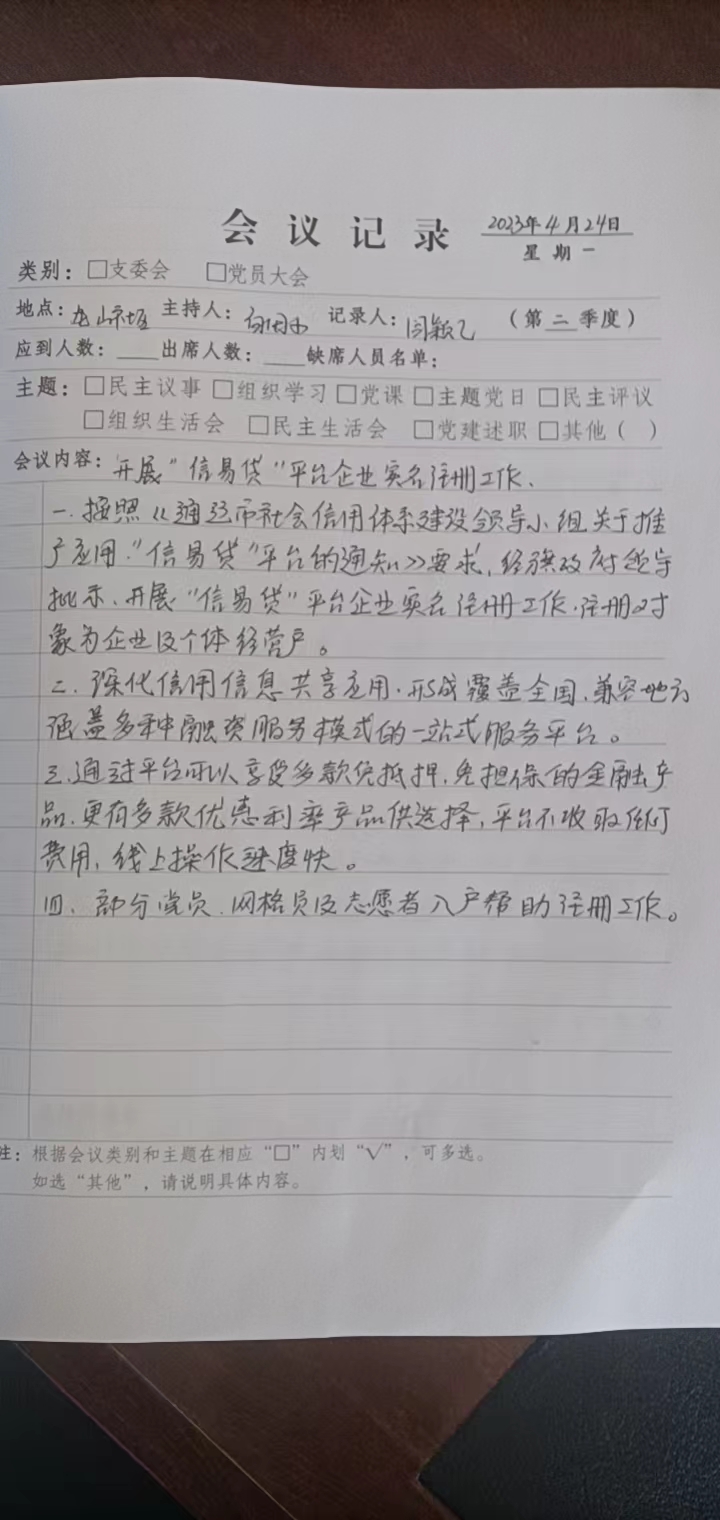 会议记录 2023年4月24日
星期一
类别：□支委会 □党员大会
地点： 主持人： 记录人：闫颖 （第二季度）
应到人数：____出席人数：____缺席人员名单：
主题：□民主议事 □组织学习 □党课 □主题党日 □民主评议
□组织生活会 □民主生活会 □党建述职 □其他（ ）
会议内容：开展"信易贷"平台企业实名注册工作、
一、按照《通辽市社会信用体系建设领导小组关于推
广应用"信易贷"平台的通知》要求，经旗政府领导
批示、开展"信易贷"平台企业实名注册工作，注册对
象为企业及个体经营户。
二、深化信用信息共享应用，形成覆盖全国，兼容地方
涵盖多种融资服务模式的一站式服务平台。
三、通过平台可以享受多款免抵押，免担保的金融产
品，更有多款优惠利率产品供选择，平台不收取任何
费用，线上操作速度快。
四、部分党员、网格员及志愿者入户帮助注册工作。
注：根据会议类别和主题在相应“□”内划“√”，可多选。
如选“其他”，请说明具体内容。